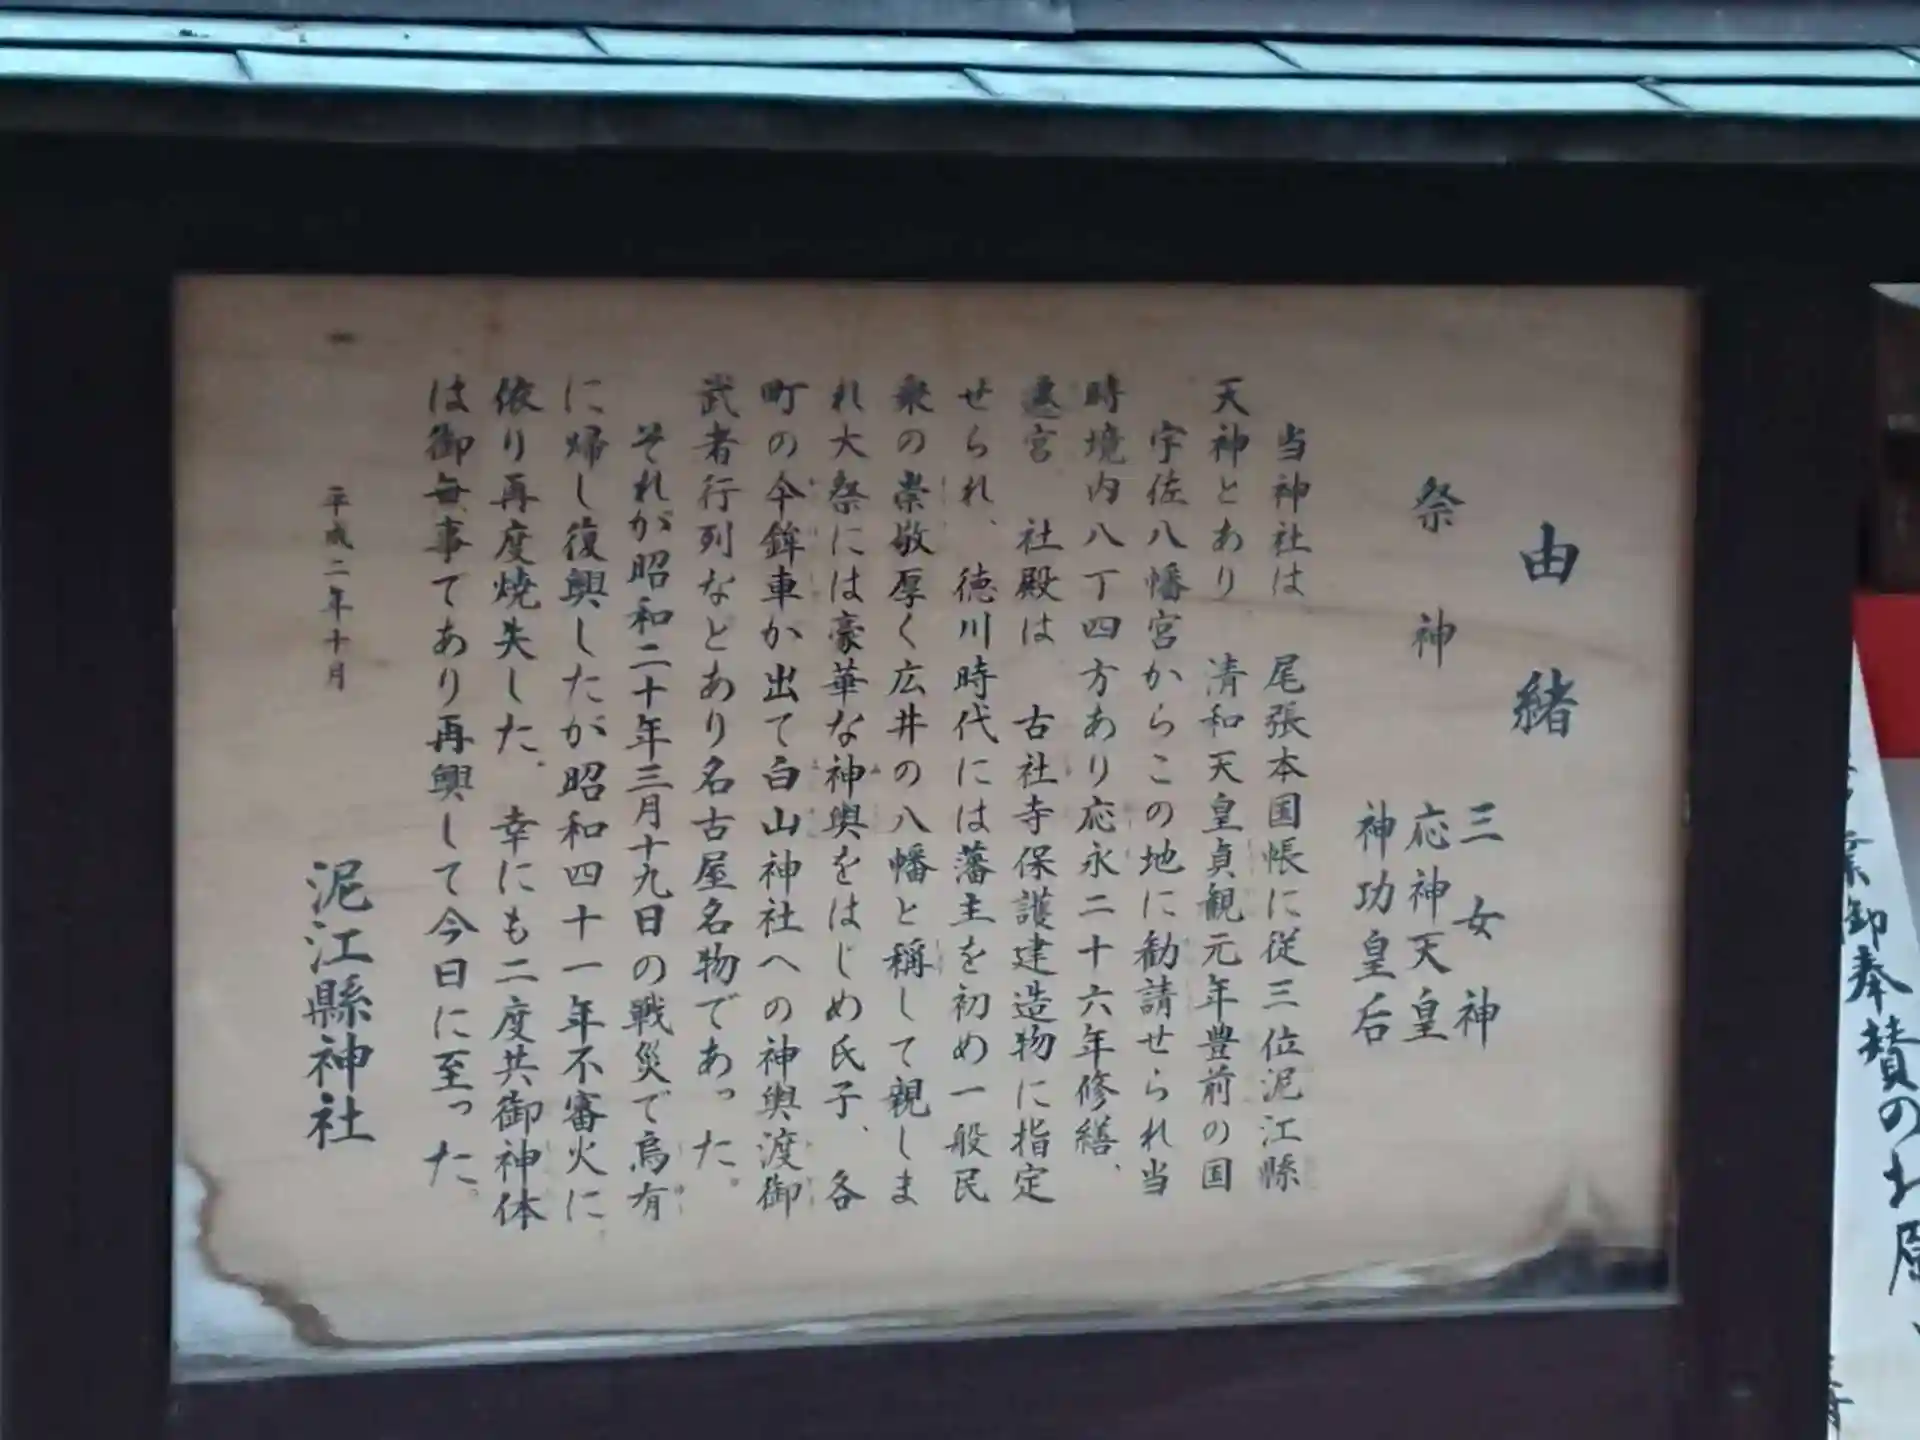 由緒
祭神
三女神
応神天皇
神功皇后
当神社は 尾張本国帳に従三位泥江縣
天神とあり 清和天皇貞観元年豊前の国
宇佐八幡宮からこの地に勧請せられ当
時境内八丁四方あり応永二十六年修繕、
遷宮 社殿は 古社寺保護建造物に指定
せられ、徳川時代には藩主を初め一般民
衆の崇敬厚く広井の八幡と稱して親しま
れ大祭には豪華な神輿をはじめ氏子、各
町の傘鉾車か出て白山神社への神輿渡御
武者行列などあり名古屋名物であった。
それが昭和二十年三月十九日の戦災で烏有
に帰し復興したが昭和四十一年不審火に
依り再度焼失した。幸にも二度共御神体
は御無事てあり再興して今日に至った。
平成二年十月
泥江縣神社
御奉賛のお